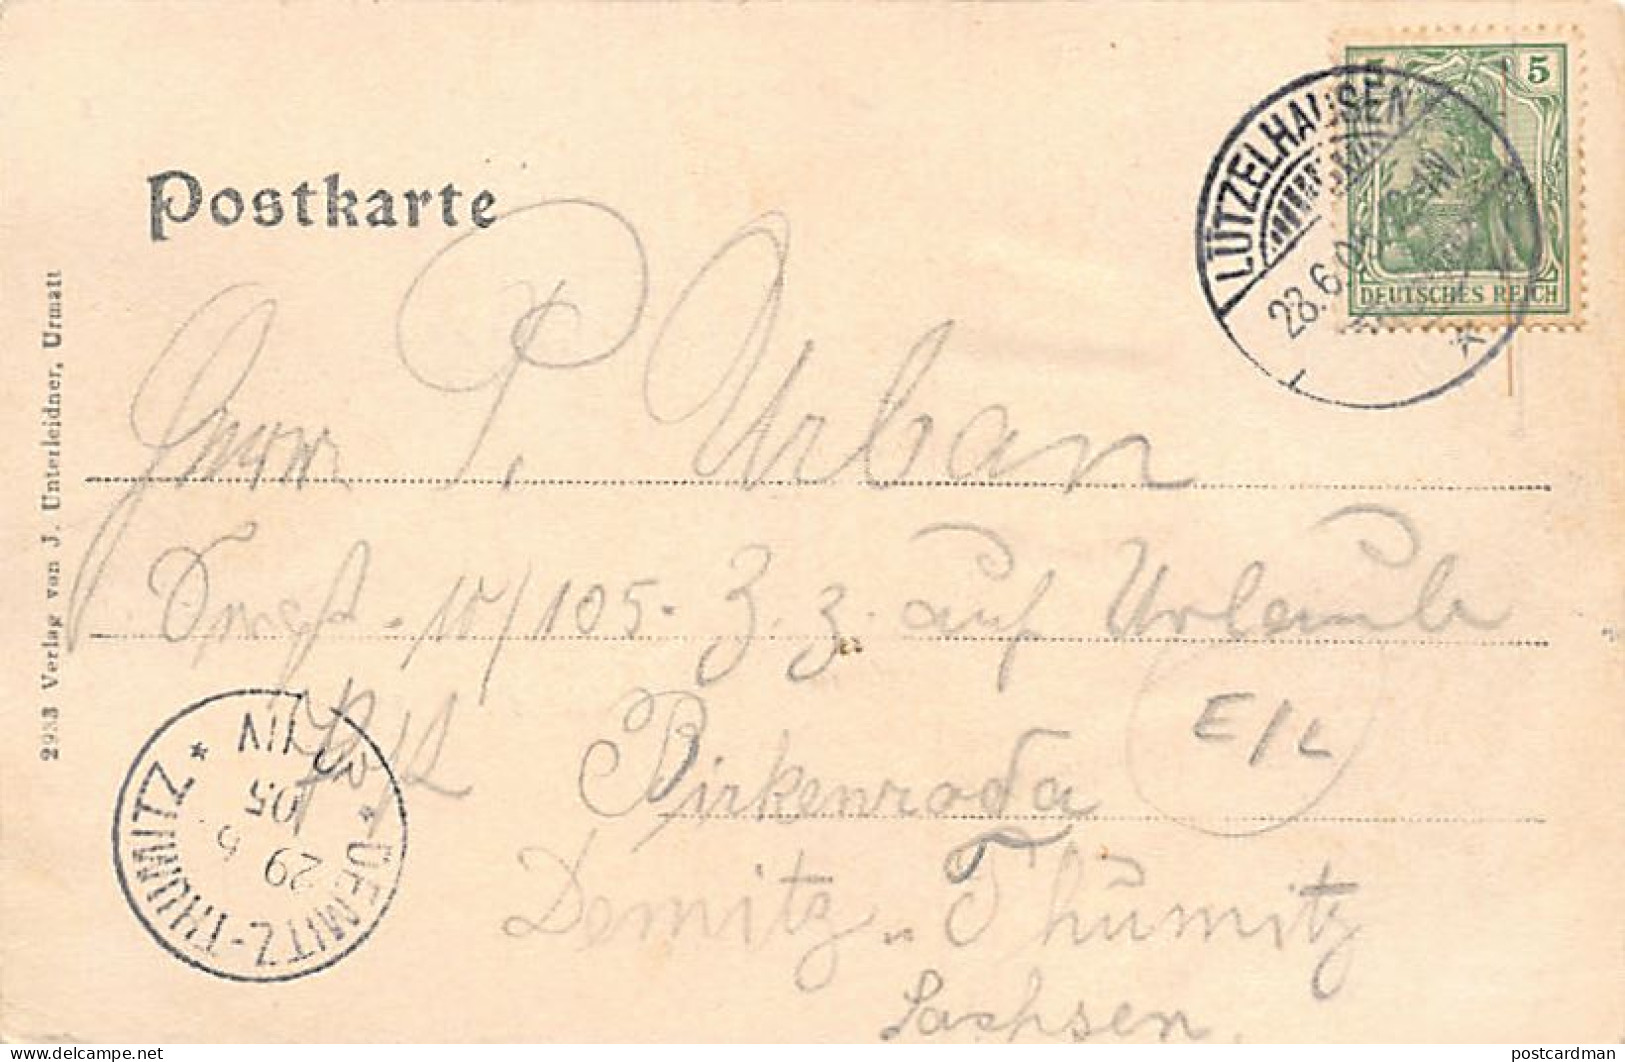 Postkarte
5 5
DEUTSCHES REICH
LÜTZELHAUSEN
28.6.05
*
2933 Verlag von J. Unterleidner, Urmatt
Herrn P. Urban
10/105. z. Z. auf Urlaub
Post Birkenroda
E/L
Demitz-Thumitz
Sachsen
* DEMITZ-THUMITZ *
29 6
05